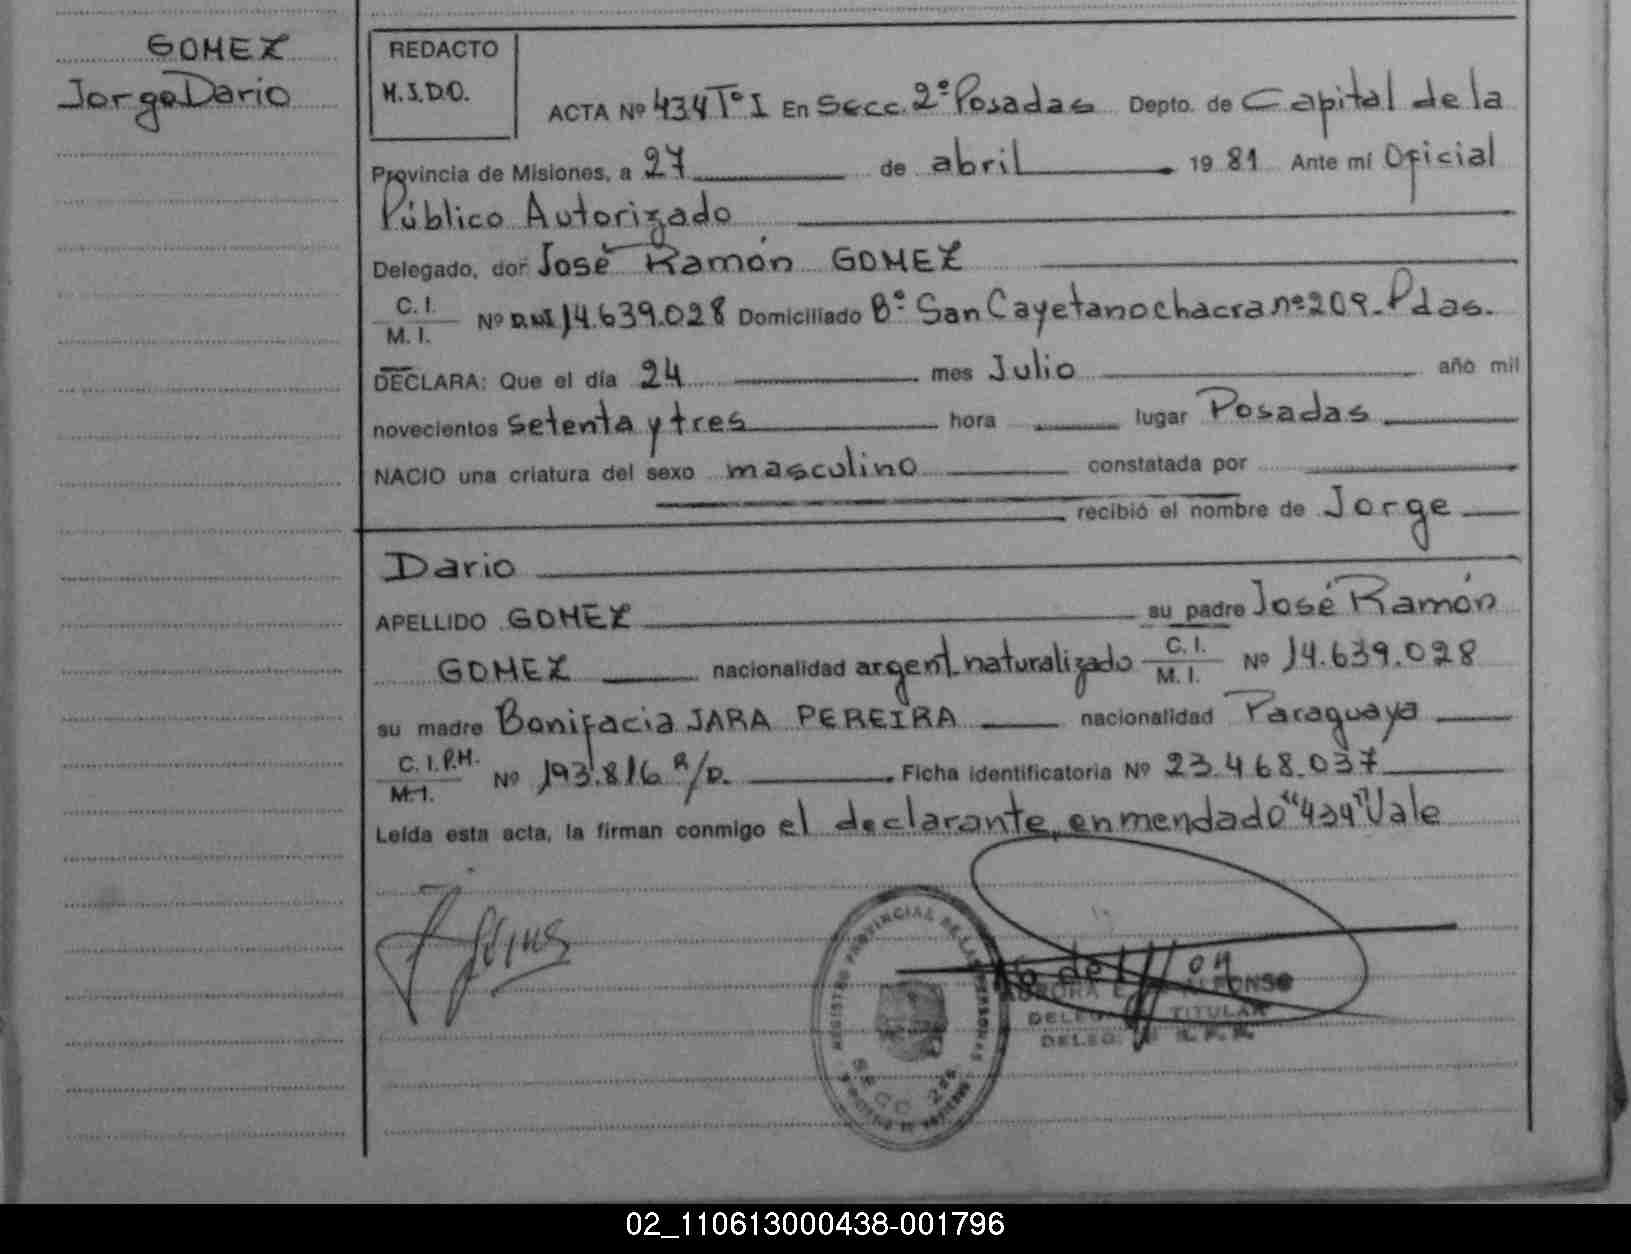 GOMEZ
Jorge Dario
REDACTO
M.S.D.O.
ACTA Nº 434 Tº I En Secc. 2º Posadas Depto. de Capital de la
Provincia de Misiones, a 27 de abril 19 81 Ante mí Oficial
Público Autorizado
Delegado, don José Ramón GOMEZ
C. I.
M. I. Nº D.N.I 14.639.028 Domiciliado Bº San Cayetano chacra nº 209. Pdas.
DECLARA: Que el día 24 mes Julio año mil
novecientos setenta y tres hora lugar Posadas
NACIO una criatura del sexo masculino constatada por
recibió el nombre de Jorge
Dario
APELLIDO GOMEZ su padre José Ramón
GOMEZ nacionalidad argent. naturalizado C. I. M. I. Nº 14.639.028
su madre Bonifacia JARA PEREIRA nacionalidad Paraguaya
C. I. P.M.
M. I. Nº 193.816 R/P. Ficha identificatoria Nº 23.468.037
Leída esta acta, la firman conmigo el declarante, enmendado "434" Vale
REGISTRO PROVINCIAL DE LAS PERSONAS
SECC 2da
AURORA ALFONSO
TITULAR
DELEG. R.P.P.
02_110613000438-001796